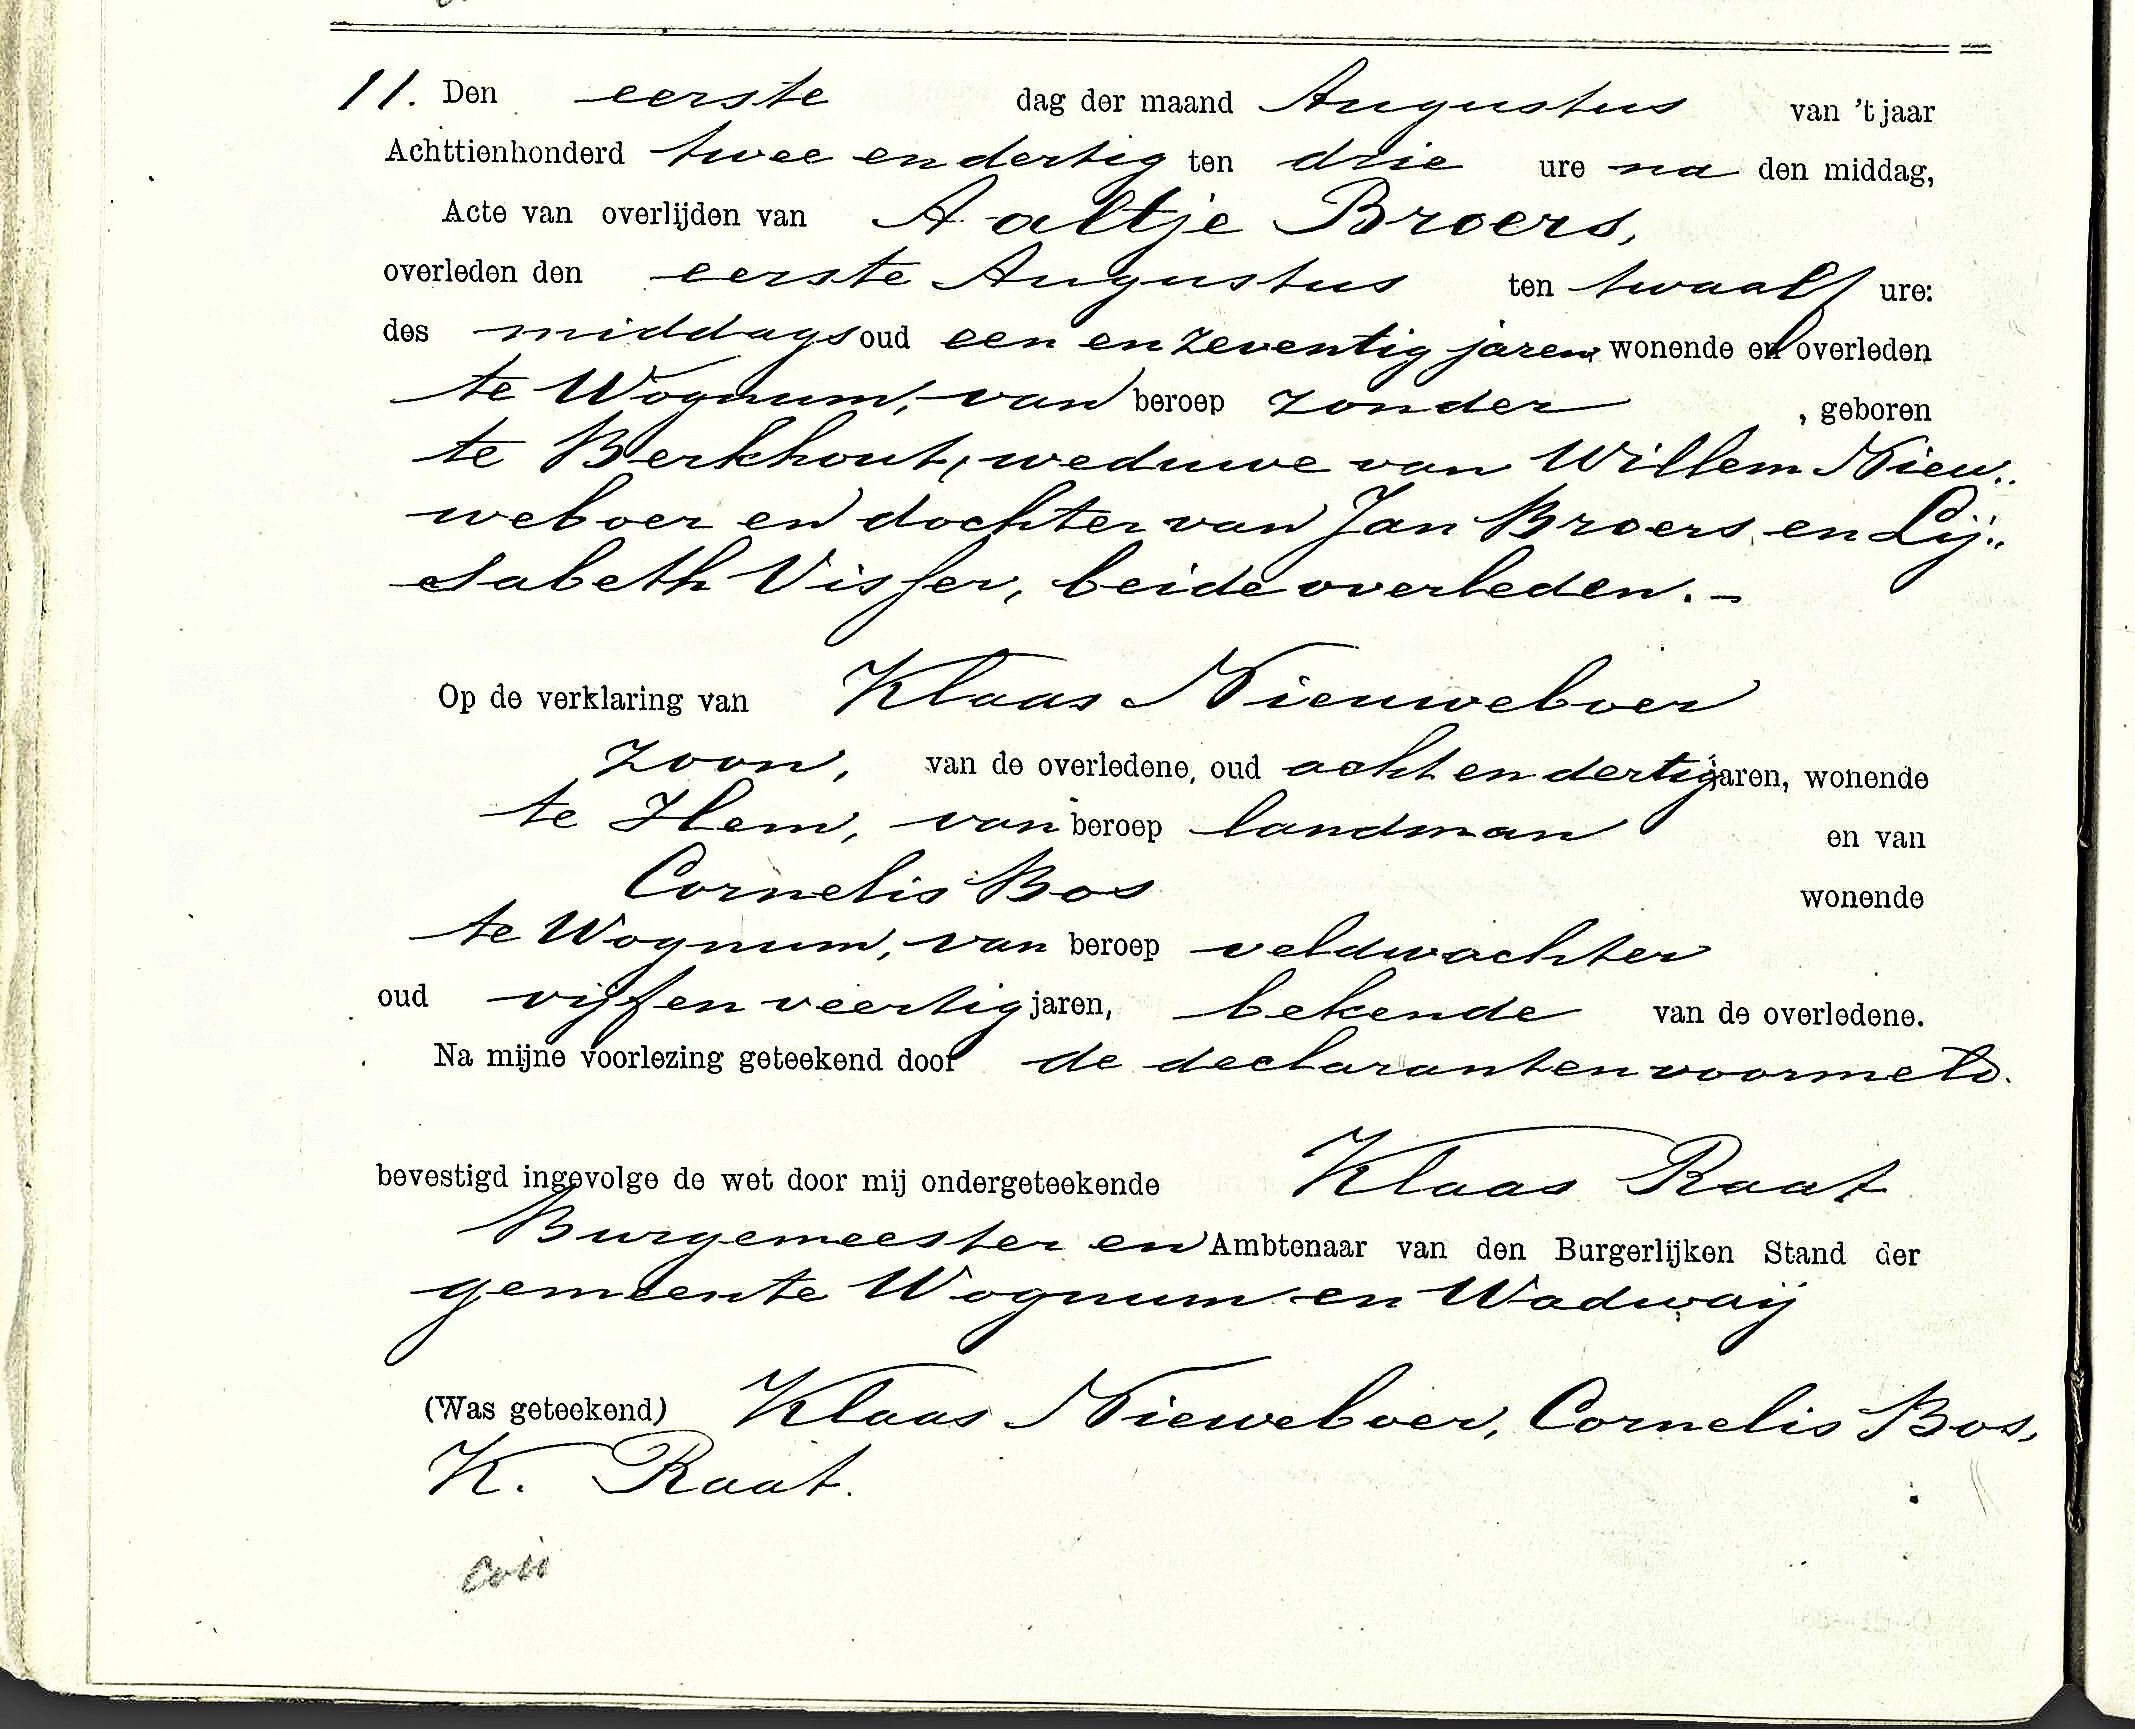 11. Den eerste dag der maand Augustus van 't jaar
Achttienhonderd twee en dertig ten drie ure na den middag,
Acte van overlijden van Aaltje Broers,
overleden den eerste Augustus ten twaalf ure:
des middags oud een en zeventig jaren, wonende en overleden
te Wognum, van beroep zonder , geboren
te Berkhout, weduwe van Willem Nieu..
weboer en dochter van Jan Broers en Lij..
sabeth Visser, beide overleden. -
Op de verklaring van Klaas Nieuweboer
zoon, van de overledene, oud acht en dertig jaren, wonende
te Hem, van beroep landman en van
Cornelis Bos wonende
te Wognum, van beroep veldwachter
oud vijf en veertig jaren, bekende van de overledene.
Na mijne voorlezing geteekend door de declaranten voormeld.
bevestigd ingevolge de wet door mij ondergeteekende Klaas Raat
Burgemeester en Ambtenaar van den Burgerlijken Stand der
gemeente Wognum en Wadwaij
(Was geteekend) Klaas Nieweboer, Cornelis Bos,
K. Raat.